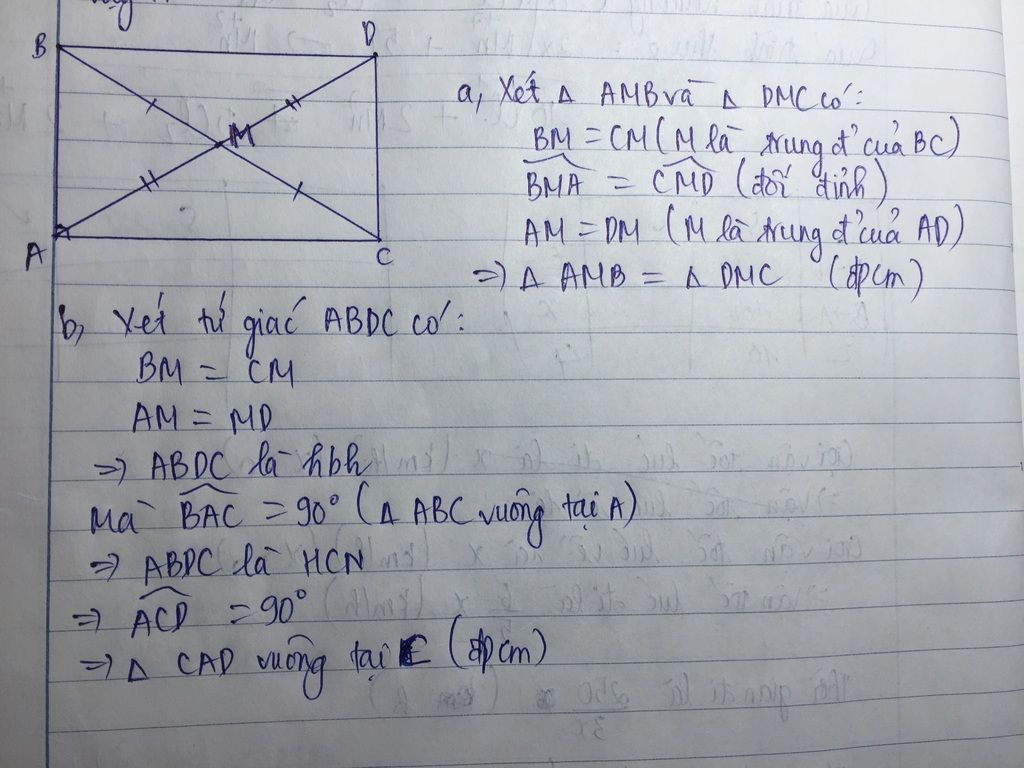 B
D
M
A
C
a, Xét △ AMB và △ DMC có:
BM = CM (M là trung đ' của BC)
BMA = CMD (đối đỉnh)
AM = DM (M là trung đ' của AD)
=> △ AMB = △ DMC (đpcm)
b, Xét tứ giác ABDC có:
BM = CM
AM = MD
=> ABDC là hbh
Mà BAC = 90° (△ ABC vuông tại A)
=> ABDC là HCN
=> ACD = 90°
=> △ CAD vuông tại C (đpcm)